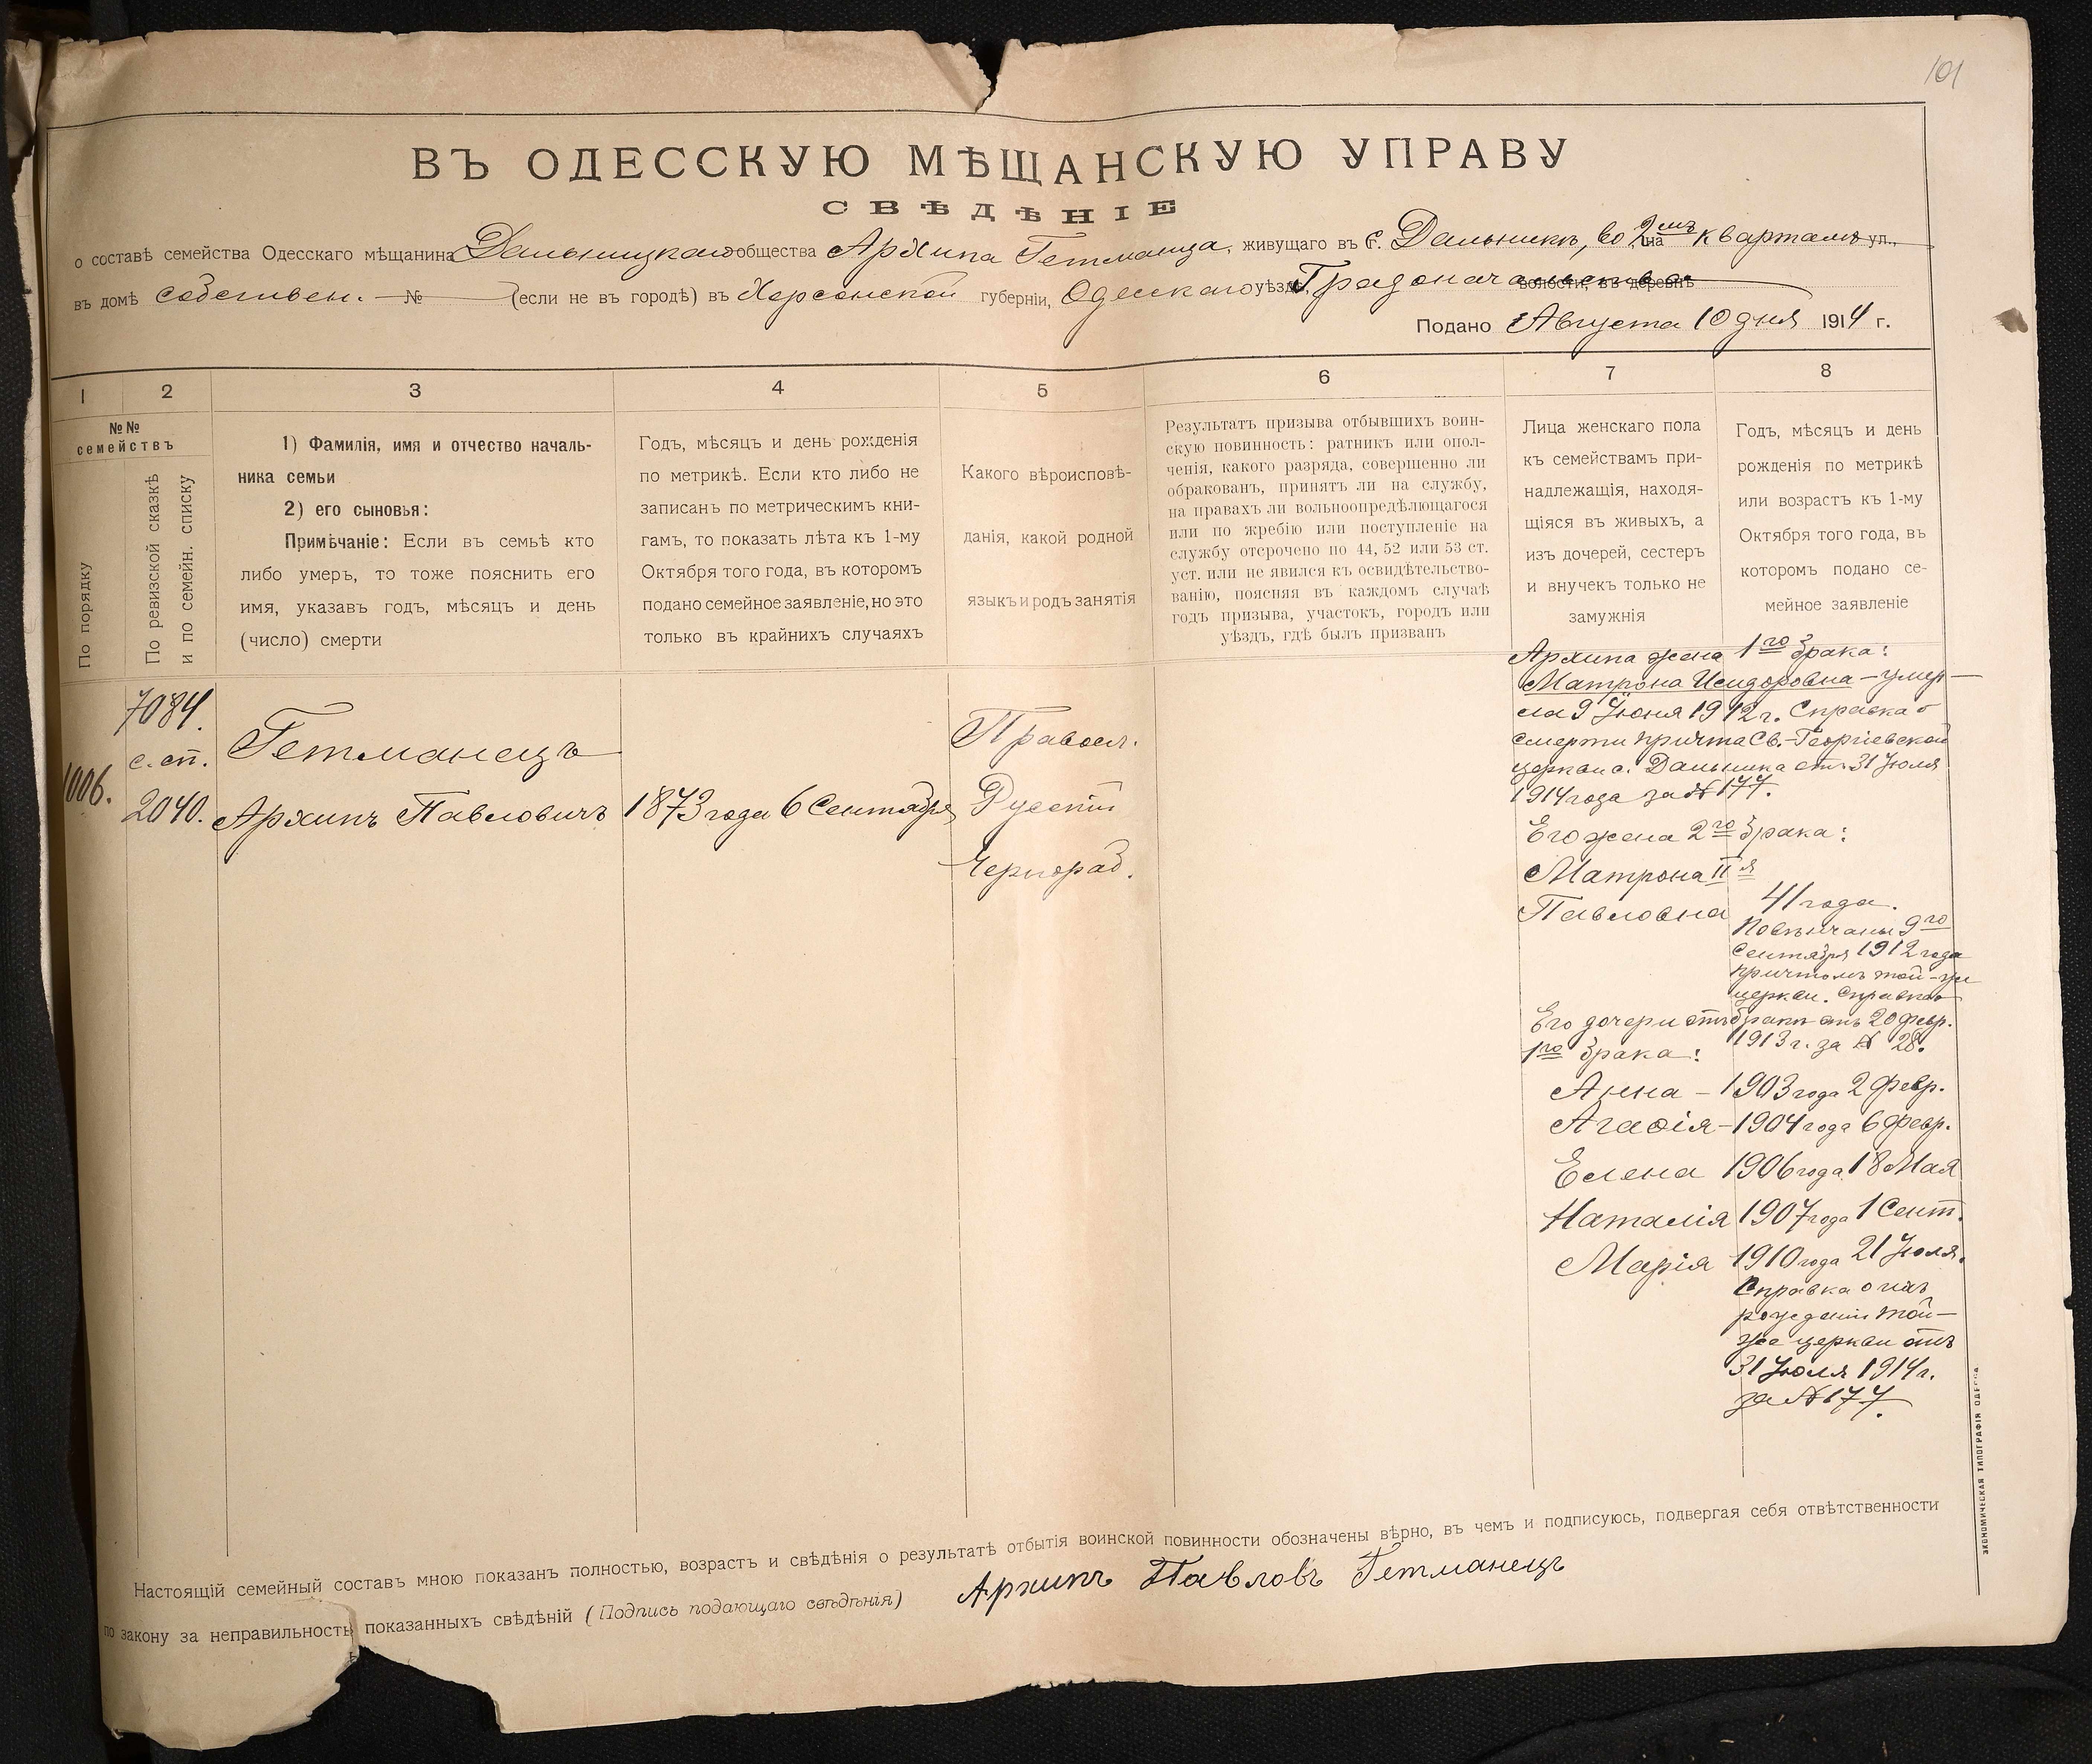 101
ВЪ ОДЕССКУЮ МѢЩАНСКУЮ УПРАВУ
СВѢДѢНІЕ
о составѣ семейства Одесскаго мѣщанина Дальницкаго общества Архипа Гетманца, живущаго въ с. Дальникъ, во 2мъ на кварталѣ ул.,
въ домѣ собствен. № (если не въ городѣ) въ Херсонской губерніи, Одесскаго уѣзда, Градоначальства волости, въ деревнѣ
Подано Августа 10 дня 1914 г.
1
2
3
4
5
6
7
8
№№
семействъ
По порядку
По ревизской сказкѣ
и по семейн. списку
1) Фамилія, имя и отчество началь-
ника семьи
2) его сыновья:
Примѣчаніе: Если въ семьѣ кто
либо умеръ, то тоже пояснить его
имя, указавъ годъ, мѣсяцъ и день
(число) смерти
Годъ, мѣсяцъ и день рожденія
по метрикѣ. Если кто либо не
записанъ по метрическимъ кни-
гамъ, то показать лѣта къ 1-му
Октября того года, въ которомъ
подано семейное заявленіе, но это
только въ крайнихъ случаяхъ
Какого вѣроисповѣ-
данія, какой родной
языкъ и родъ занятія
Результатъ призыва отбывшихъ воин-
скую повинность: ратникъ или опол-
ченія, какого разряда, совершенно ли
обракованъ, принятъ ли на службу,
на правахъ ли вольноопредѣляющагося
или по жребію или поступленіе на
службу отсрочено по 44, 52 или 53 ст.
уст. или не явился къ освидѣтельство-
ванію, поясняя въ каждомъ случаѣ
годъ призыва, участокъ, городъ или
уѣздъ, гдѣ былъ призванъ
Лица женскаго пола
къ семействамъ при-
надлежащія, находя-
щіяся въ живыхъ, а
изъ дочерей, сестеръ
и внучекъ только не
замужнія
Годъ, мѣсяцъ и день
рожденія по метрикѣ
или возрастъ къ 1-му
Октября того года, въ
которомъ подано се-
мейное заявленіе
1006.
7084.
с. сп.
2040.
Гетманецъ
Архипъ Павловичъ
1873 года 6 Сентября
Правосл.
Русскій
Чернораб.
Архипа жена 1го брака:
Матрона Исидоровна – умер-
ла 9 Іюня 1912 г. Справка о
смерти причта Св.-Георгіевской
церкви с. Дальника отъ 31 Іюля
1914 года за № 177.
Его жена 2го брака:
Матрона IIя
Павловна 41 года.
Повѣнчаны 9го
Сентября 1912 года
причтомъ той-же
церкви. Справка о
бракѣ отъ 20 февр.
1913 г. за № 28.
Его дочери отъ
1го брака:
Анна – 1903 года 2 февр.
Агафія – 1904 года 6 февр.
Елена 1906 года 18 Мая
Наталія 1907 года 1 Сент.
Марія 1910 года 21 Іюля.
Справка о ихъ
рожденіи той-
же церкви отъ
31 Іюля 1914 г.
за № 177.
Настоящій семейный составъ мною показанъ полностью, возрастъ и свѣдѣнія о результатѣ отбытія воинской повинности обозначены вѣрно, въ чемъ и подписуюсь, подвергая себя отвѣтственности
по закону за неправильность показанныхъ свѣдѣній (Подпись подающаго свѣдѣнія) Архипъ Павловъ Гетманецъ
ЭКОНОМИЧЕСКАЯ ТИПОГРАФІЯ ОДЕССА